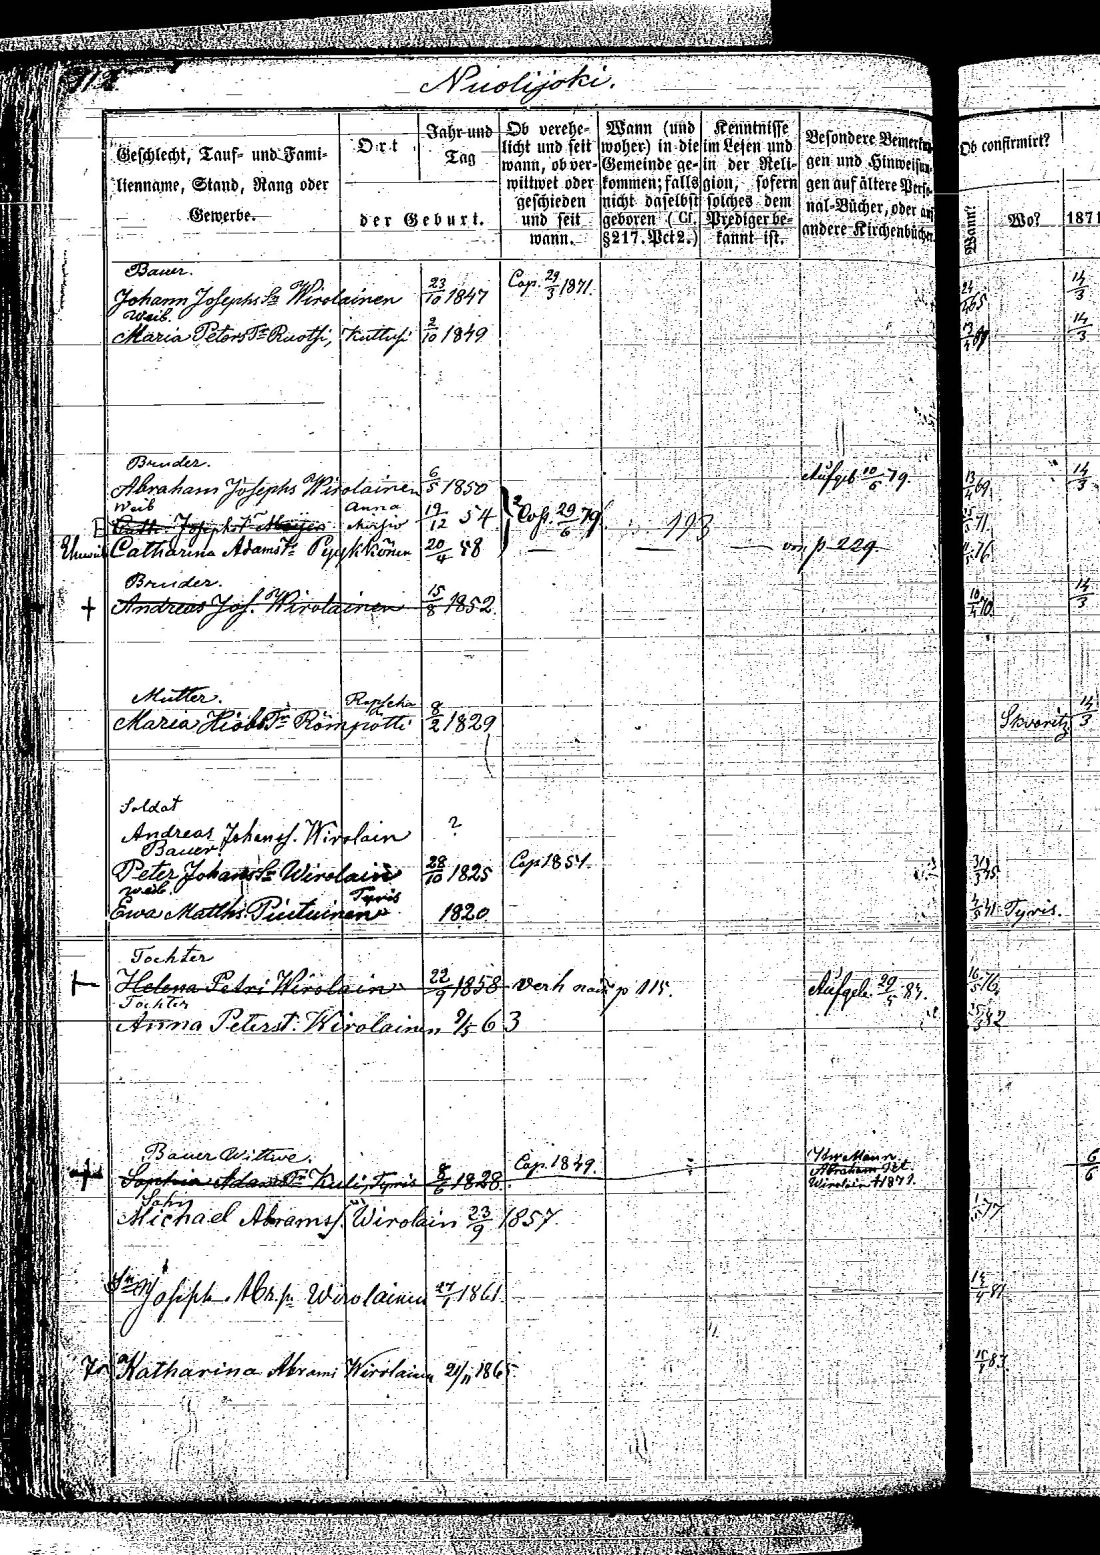 112
Nuolijoki.
Geschlecht, Tauf- und Fami-
lienname, Stand, Rang oder
Gewerbe.
Ort
Jahr und
Tag
der Geburt.
Ob verehe-
licht und seit
wann, ob ver-
wittwet oder
geschieden
und seit
wann.
Wann (und
woher) in die
Gemeinde ge-
kommen; falls
nicht daselbst
geboren (Cf.
§217. Pct 2.)
Kenntnisse
im Lesen und
in der Reli-
gion, sofern
solches dem
Prediger be-
kannt ist.
Besondere Bemerkun-
gen und Hinweisun-
gen auf ältere Perso-
nal-Bücher, oder auf
andere Kirchenbücher.
Ob confirmirt?
Wann?
Wo?
1871
Bauer.
Johann Josephs Sn Wirolainen 23/10 1847 Cop. 29/3 1871. 65 14/3
Weib.
Maria Peters Tr Ruotsi, Kuttusi 2/10 1849 14/3
Bruder.
Abraham Josephs Wirolainen 6/5 1850 Aufgeb. 10/6 79. 13/4 69 14/3
Weib Anna
19/12 54 2 Cop. 29/6 79 193 71
Catharina Adams Tr Pyykkönen 20/4 58 von p. 229. 76
Bruder.
+ Andreas Jos. Wirolainen 15/8 1852. 10/4 70 14/3
Mutter. Ropscha
Maria Hiobs Tr Römpötti 8/2 1829 Skworitz 14/3
Soldat
Andreas Johanss. Wirolain ?
Bauer.
Peter Johanns Sn Wirolain 28/10 1825 Cop 1851. 45
Weib. Tyris
Ewa Matths. Piutuinen 1820. 41 Tyris.
Tochter
Helena Petri Wirolain 22/9 1858 verh nach p 115. Aufgeb. 83. 16/5 76
Tochter
Anna Peterst. Wirolainen 9/5 63 82
Bauer Wittwe. Cop. 1849. Ihr Mann
+ Sophia Adams Tr Tyris 8/6 1828. Abraham
Wirolain + 1871. 6/6
Sohn
Michael Abramss. Wirolain 23/9 1857 77
Joseph Wirolainen 27/1 1861 81
Katharina Abrams Wirolainen 21/11 1865. 83